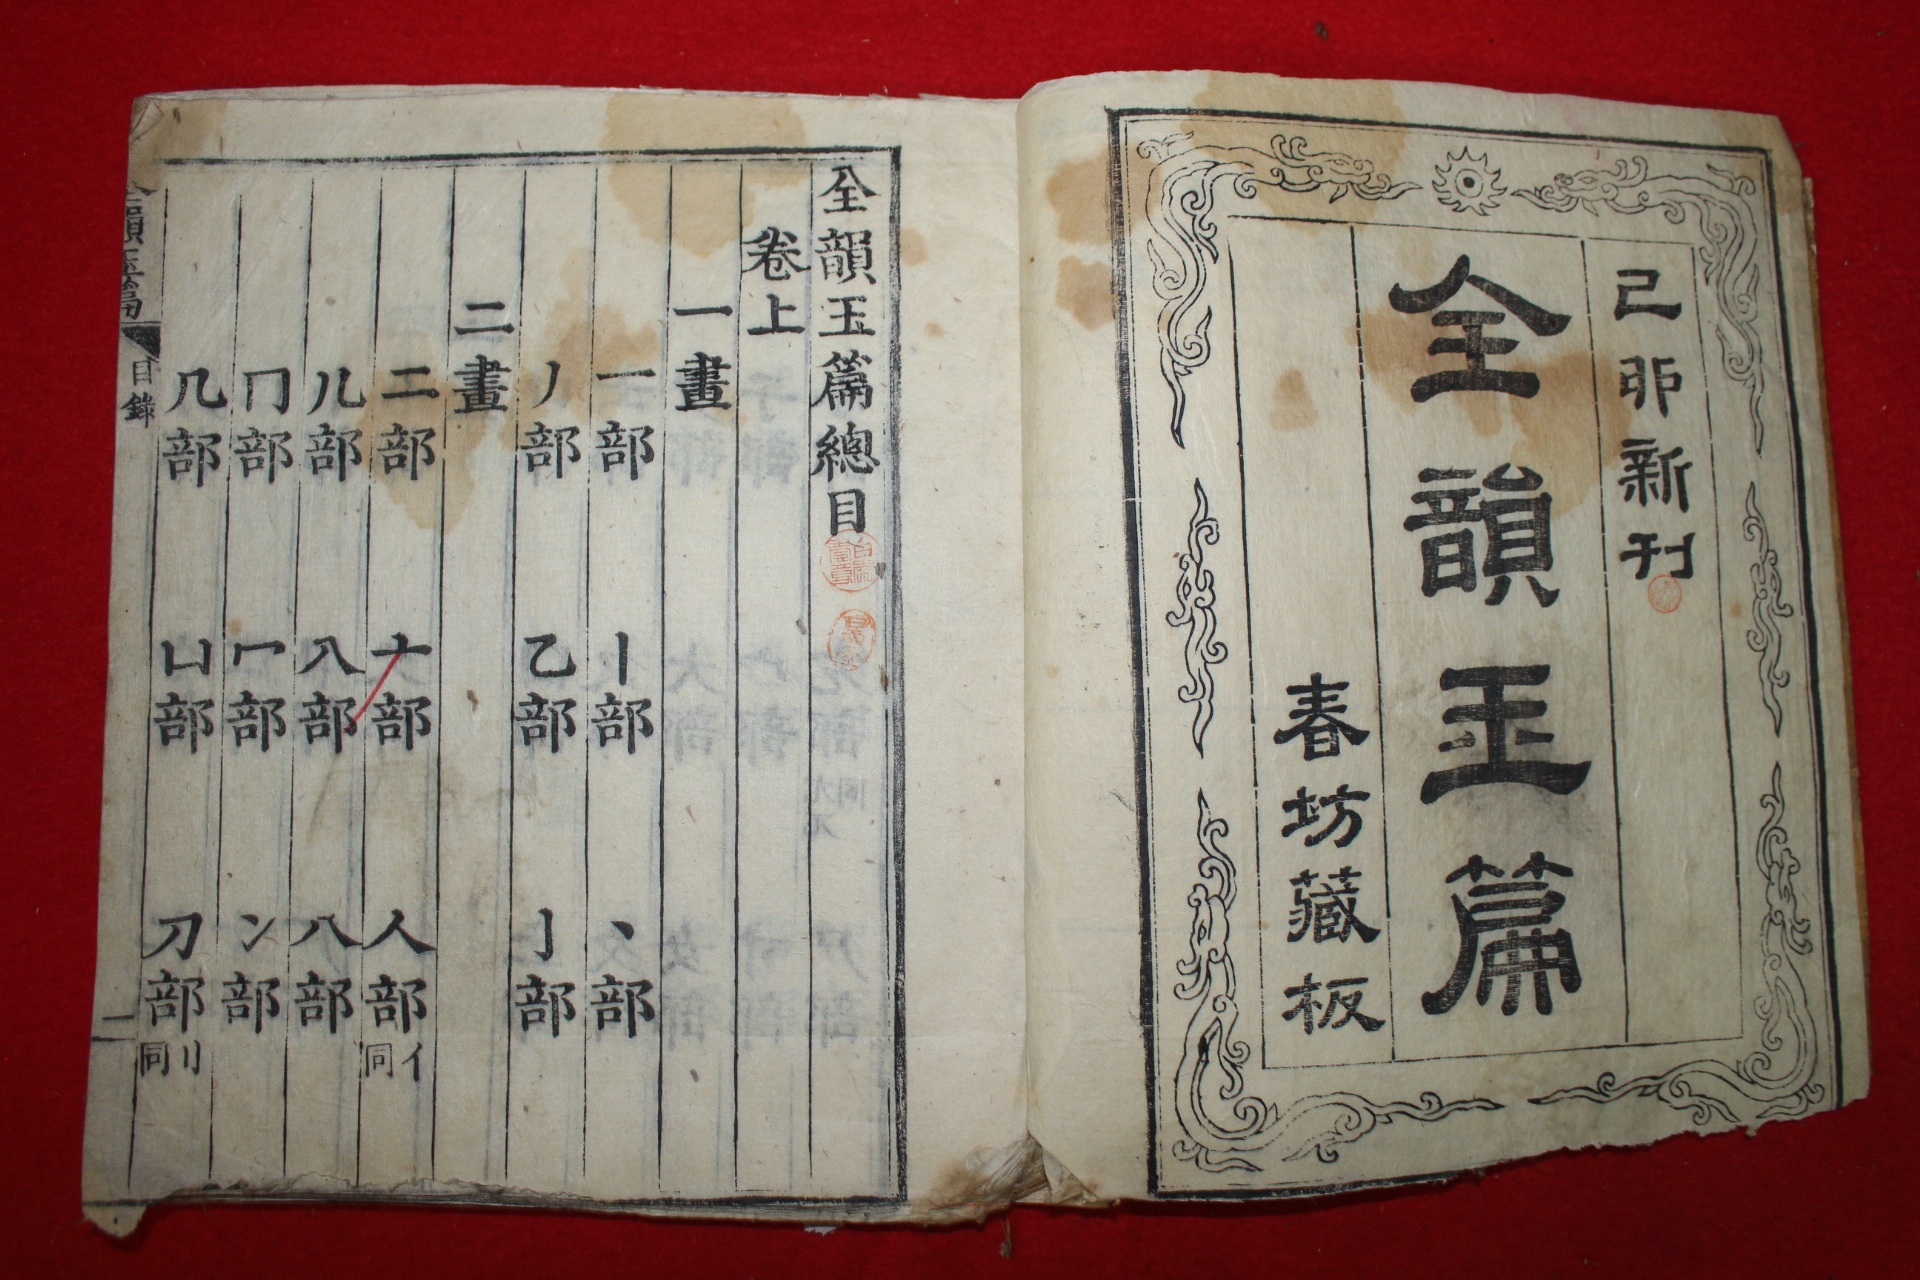 己卯新刊
全韻玉篇
春坊藏板
全韻玉篇總目
卷上
一畫
一部 丨部 丶部
丿部 乙部 亅部
二畫
二部 亠部 人部 亻同
儿部 入部 八部
冂部 冖部 冫部
几部 凵部 刀部 刂同
全韻玉篇 目錄 一